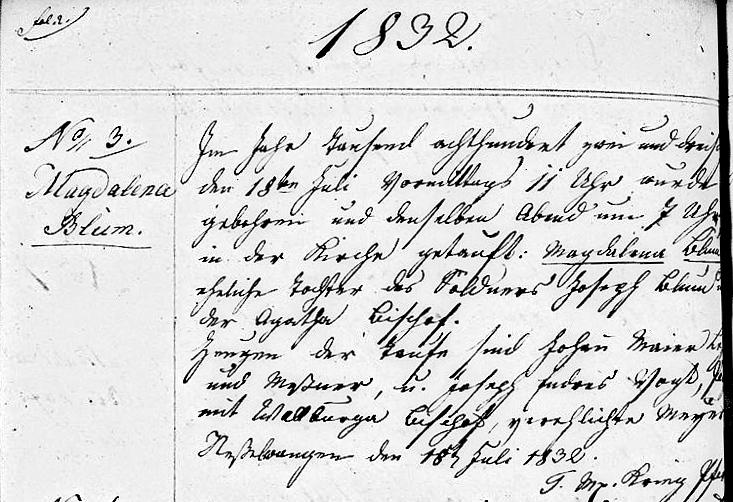 fol. 2.
1832.
No. 3.
Magdalena
Blum.
Im Jahr Tausend achthundert zwei und dreis
den 18ten Juli Vormittags 11 Uhr wurde
gebohren und denselben Abend um 7 Uhr
in der Kirche getauft: Magdalena Blum
eheliche Tochter des Soldners Joseph Blum
der Agatha Bischof.
Zeugen der Taufe sind Johann Maier
und Meßner, u. Joseph Endres Vogt,
mit Wallburga Bischof, verehlichte Meyer
den 18t Juli 1832.